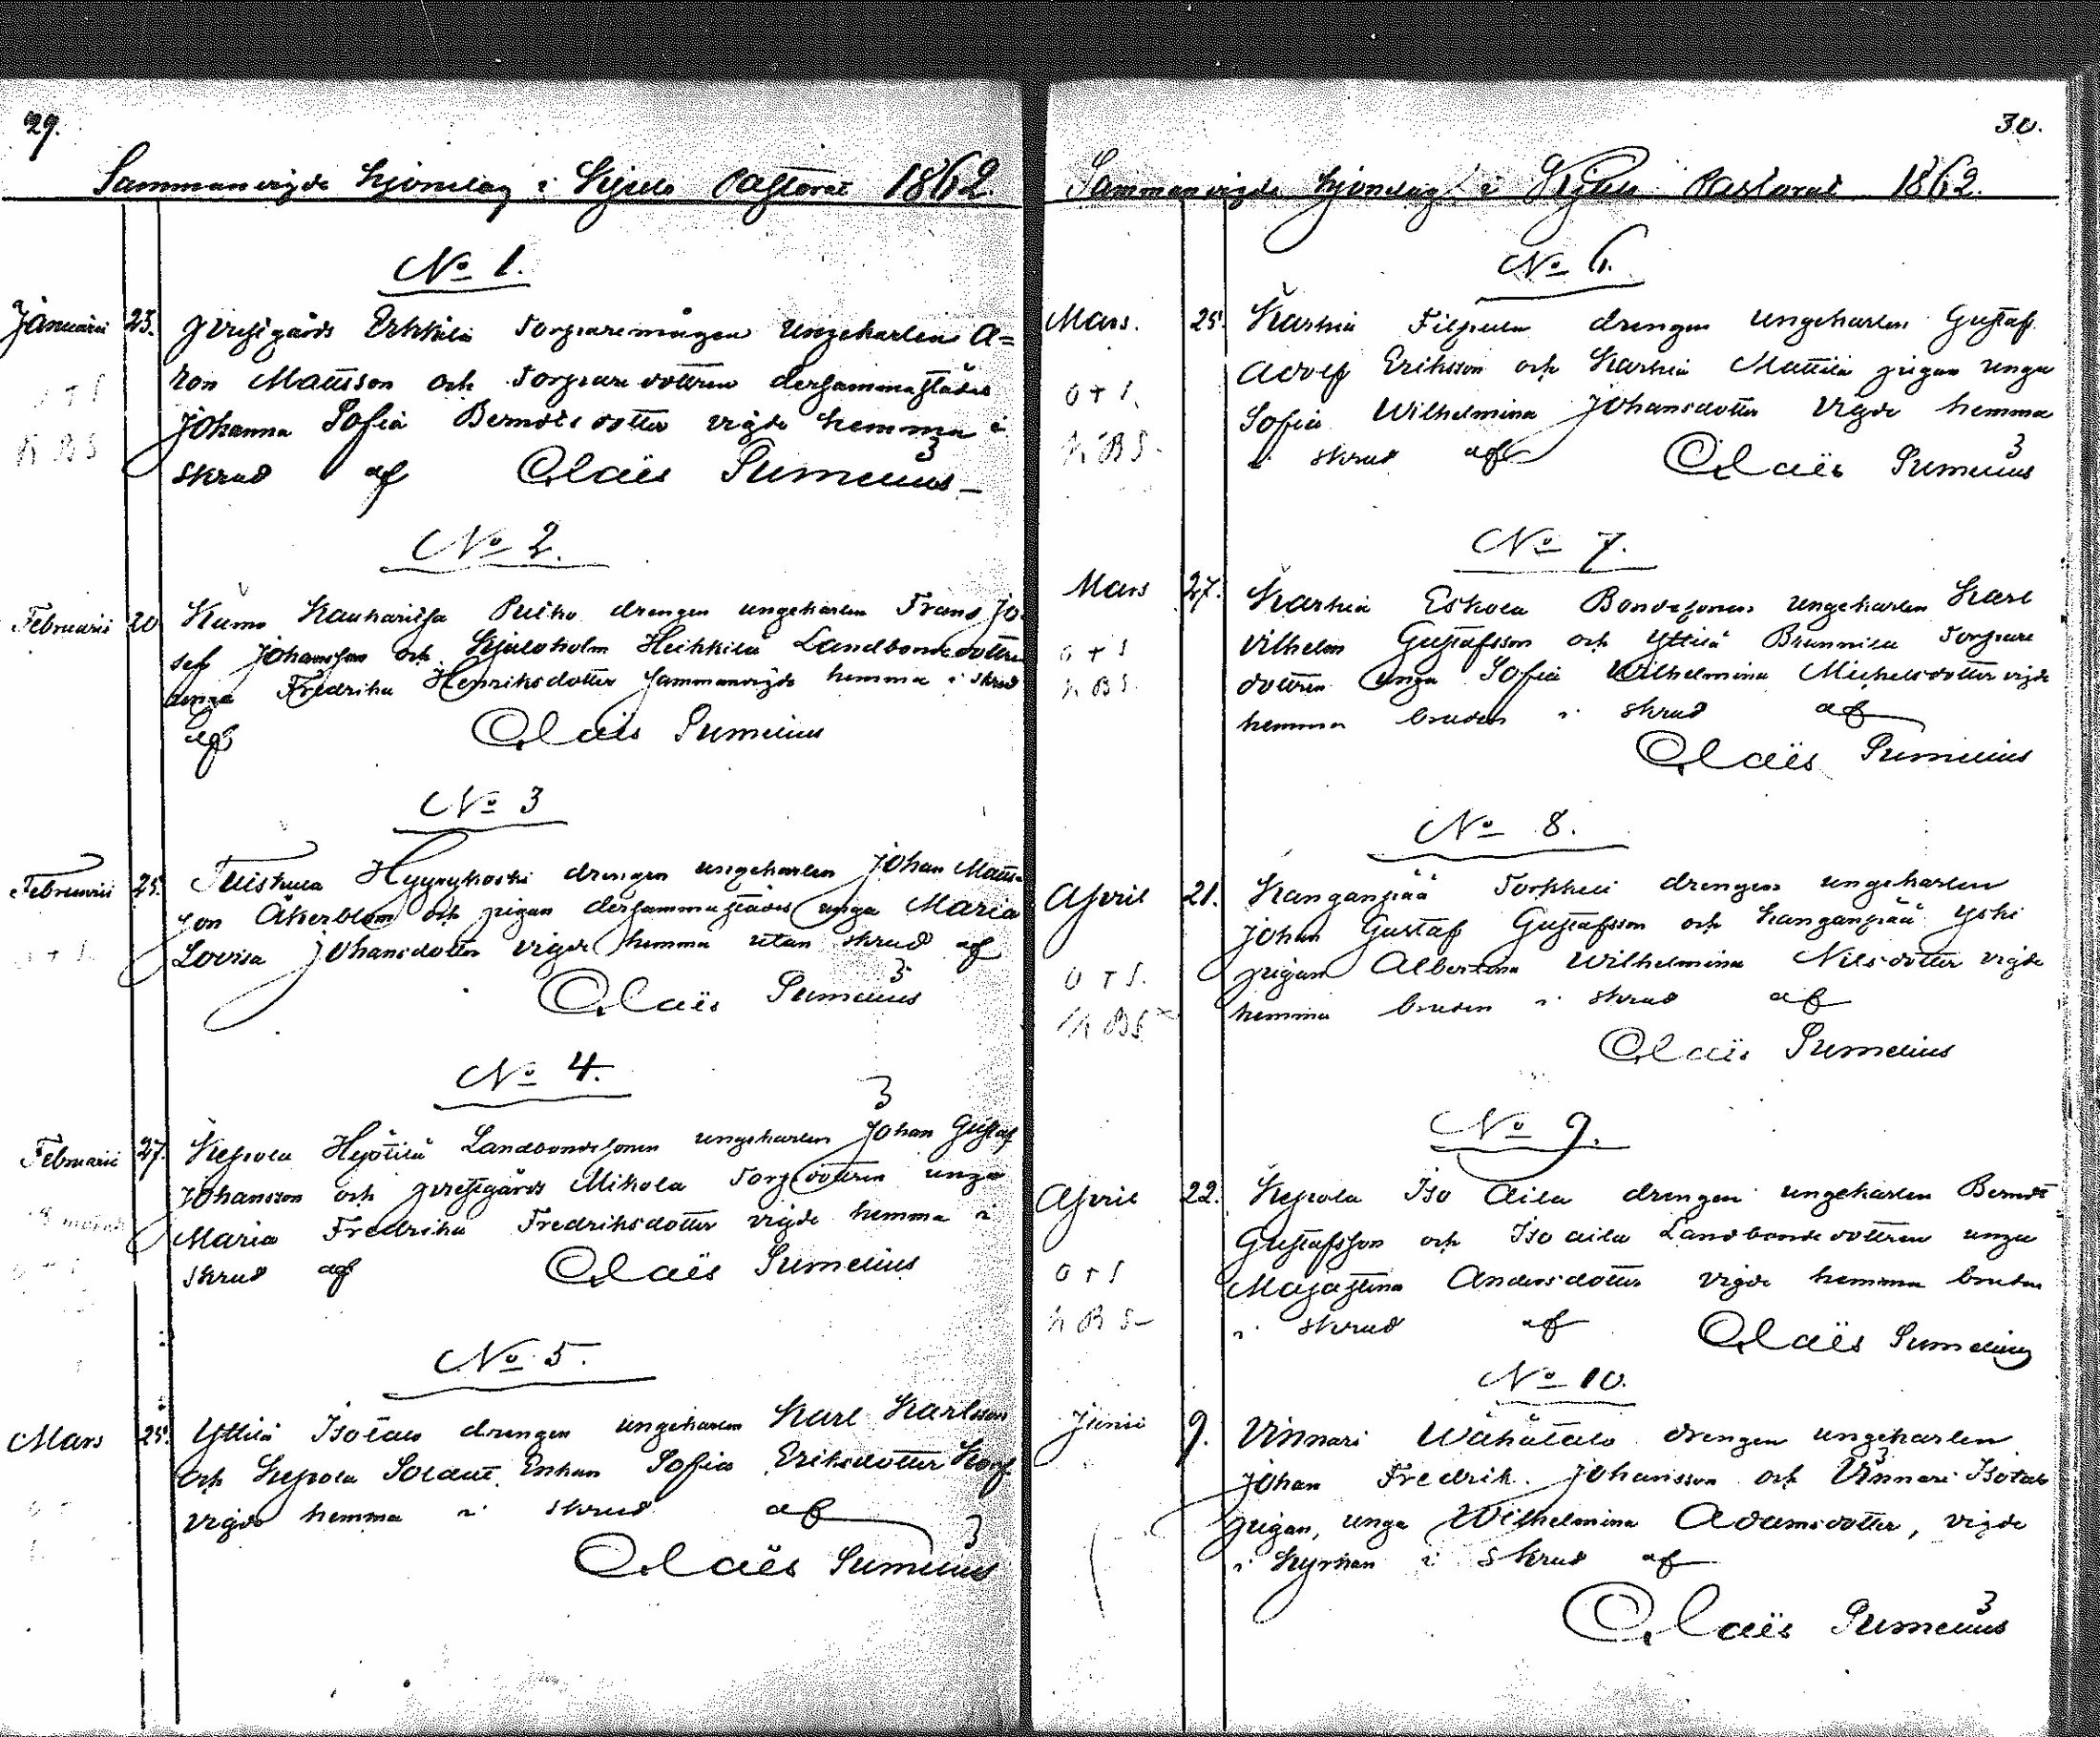 29.
Sammanvigde Hjonelag i Kjulo Pastorat 1862.
No 1.
Januarii 23. Prestgårds Erkkilä Torparemågen Ungekarlen A=
ron Mattsson och Torparedottren dersammastädes
Johanna Sofia Berndtsdotter vigde hemma i
skrud af Claës Sumelius
No 2.
Februarii 20 Kumo Kauharitsa Puiho drengen ungekarlen Frans Jo-
sef Johansson och Kjuloholm Heikkilä Landbondedottren
unga Fredrika Henriksdotter sammanvigde hemma i skrud
af Claës Sumelius
No 3
Februarii 25. Tuiskula Hyynykoski drengen ungekarlen Johan Matts-
son Åkerblom och pigan dersammastädes unga Maria
Lovisa Johansdotter vigde hemma utan skrud af
Claës Sumelius
No 4.
Februarii 27. Kepola Heiötilä Landbondesonen ungekarlen Johan Gustaf
Johansson och prestgårds Mikola Torp dottren unga
Maria Fredrika Fredriksdotter vigde hemma i
skrud af Claës Sumelius
No 5.
Mars 25. Yttilä Isotalo drengen ungekarlen Karl Karlsson
och Kepola Soldat Enkan Sofia Eriksdotter Korp
vigde hemma i skrud af
Claës Sumelius
30.
Sammanvigde Hjonelag i Kjulo Pastorat 1862.
No 6.
Mars. 25. Karhia Filpula drengen ungekarlen Gustaf
Adolf Eriksson och Karhia Mattila pigan unga
Sofia Wilhelmina Johansdotter vigde hemma
i skrud af Claës Sumelius
No 7.
Mars 27. Karhia Eskola Bondesonen Ungekarlen Karl
Vilhelm Gustafsson och Yttilä Brunnila Torpare
dottren unga Sofia Wilhelmina Michelsdotter vigde
hemma bruden i skrud af
Claës Sumelius
No 8.
April 21. Kanganpää Torkkeli drengen ungekarlen
Johan Gustaf Gustafsson och Kanganpää Yski
pigan Albertina Wilhelmina Nilsdotter vigde
hemma bruden i skrud af
Claës Sumelius
No 9.
April 22. Kepola Iso Aila drengen ungekarlen Berndt
Gustafsson och Iso aila Landbondedottren unga
Majastina Andersdotter vigde hemma bruden
i skrud af Claës Sumelius
No 10.
Junii 9. Vinnari Wähätalo drengen ungekarlen
Johan Fredrik Johansson och Vinnari Isotalo
pigan, unga Wilhelmina Adamsdotter, vigde
i Kyrkan i skrud af
Claës Sumelius